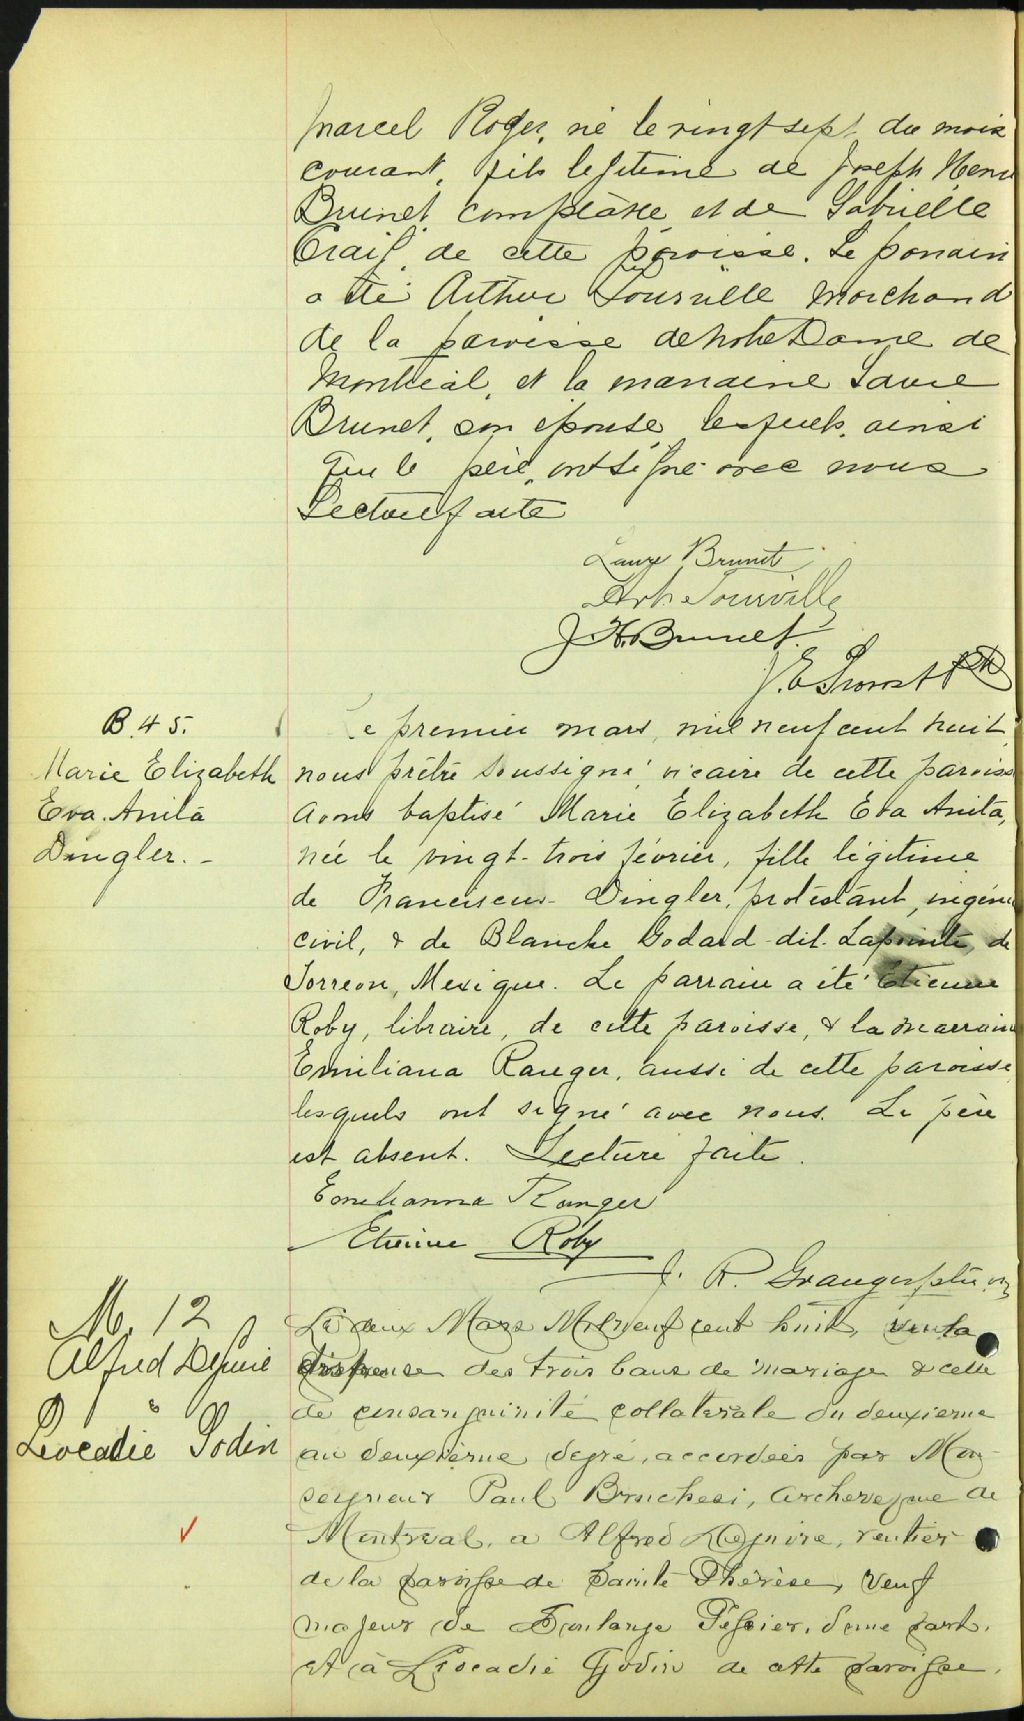 Marcel Roger, né le vingt sept du mois
courant, fils legitime de Joseph Henri
Brunet comptable et de Gabrielle
Craig, de cette paroisse. Le parrain
a été Arthur Tourville marchand
de la paroisse de Notre Dame de
Montréal, et la marraine Laure
Brunet, son épouse, lesquels, ainsi
que le père, ont signé avec nous
Lecture faite
Laure Brunet
Arth Tourville
J. H. Brunet.
J. E. Provost Ptr
B. 45.
Marie Elizabeth
Eva. Anita
Dingler. -
Le premier mars, mil neuf cent huit,
nous prêtre soussigné, vicaire de cette paroisse
avons baptisé Marie Elizabeth Eva Anita,
née le vingt-trois février, fille légitime
de Franciscus Dingler, protestant, ingéni
civil, & de Blanche Godard-dit-Lapointe, de
Torreon, Mexique. Le parrain a été Etienne
Roby, libraire, de cette paroisse, & la marraine
Emiliana Ranger, aussi de cette paroisse
lesquels ont signé avec nous. Le père
est absent. Lecture faite.
Emelianna Ranger
Etienne Roby
J. R. Granger ptre
M. 12
Alfred
&
Leocadie Godin
Le deux Mars Mil neuf cent huit, vu la
dispense des trois bans de mariage & cette
de consanguinité collaterale du deuxieme
au deuxième degré, accordées par Mon-
seigneur Paul Bruchesi, archeveque de
Montreal, a Alfred, rentier
de la paroisse de Sainte Thérèse, veuf
majeur de Tessier, d'une part,
et à Léocadie Godin de cette paroisse,